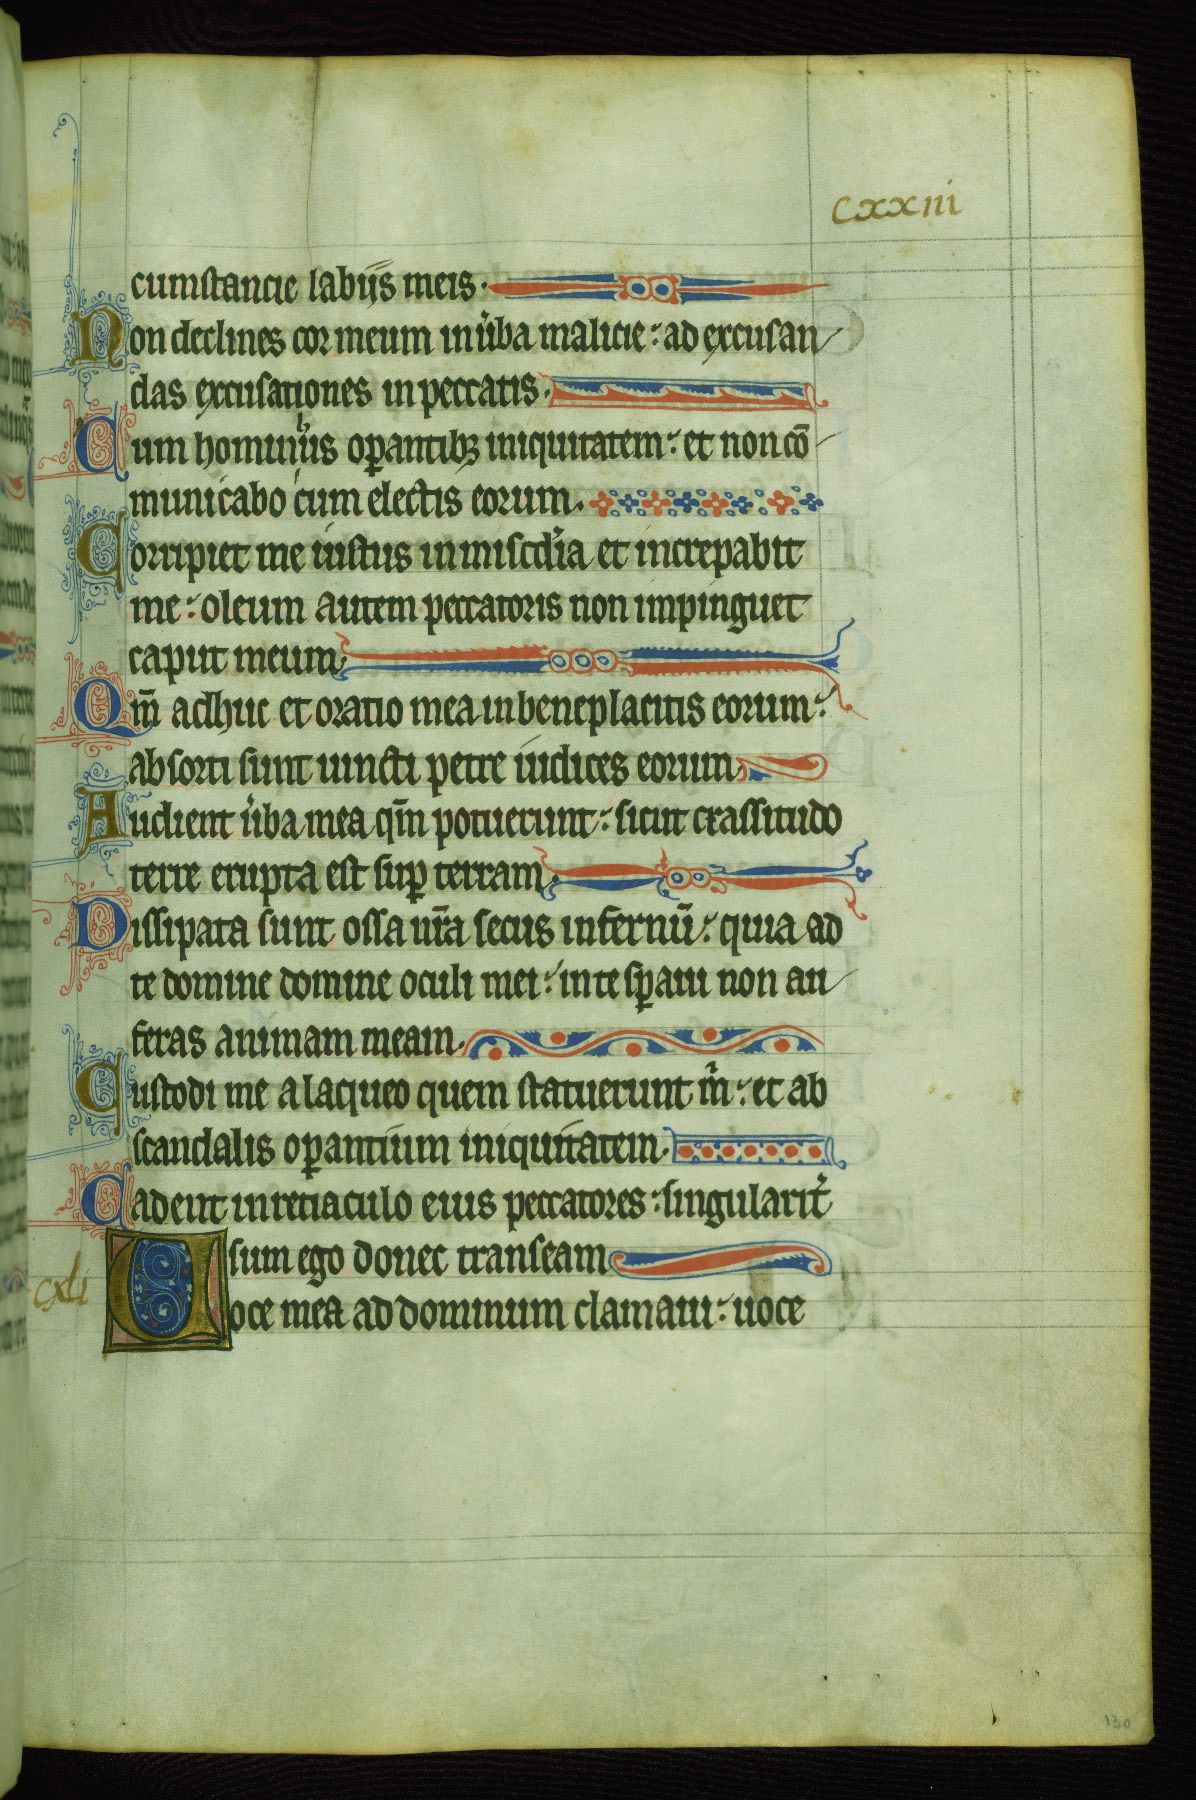 cxxiii
cumstancie labijs meis.
Non declines cor meum in u̾ba malicie: ad excusan
das excusationes in peccatis.
Cum hominib̾us oꝑantibꝫ iniquitatem: et non cō
municabo cum electis eorum.
Corripiet me iustus in miscd̾ia et increpabit
me: oleum autem peccatoris non impinguet
caput meum.
Qm̄ adhuc et oratio mea in beneplacitis eorum:
absorti sunt iuncti petre iudices eorum.
Audient u̾ba mea qm̄ potuerunt: sicut crassitudo
terre erupta est suꝑ terram.
Dissipata sunt ossa nr̄a secus infernū: quia ad
te domine domine oculi mei: in te sꝑaui non au
feras animam meam.
Custodi me a laqueo quem statuerunt m̍: et ab
scandalis oꝑantium iniquitatem.
Cadent in retiaculo eius peccatores: singularit̾
sum ego donec transeam
cxli
Uoce mea ad dominum clamaui: uoce
130